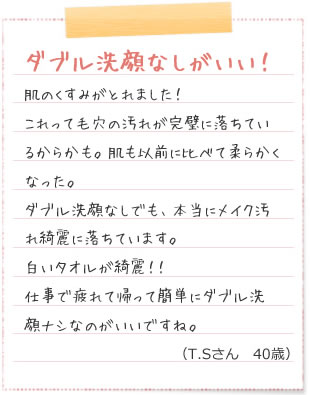 ダブル洗顔なしがいい!
肌のくすみがとれました!
これって毛穴の汚れが完璧に落ちてい
るからかも。肌も以前に比べて柔らかく
なった。
ダブル洗顔なしでも、本当にメイク汚
れ綺麗に落ちています。
白いタオルが綺麗!!
仕事で疲れて帰って簡単にダブル洗
顔ナシなのがいいですね。
(T.Sさん 40歳)